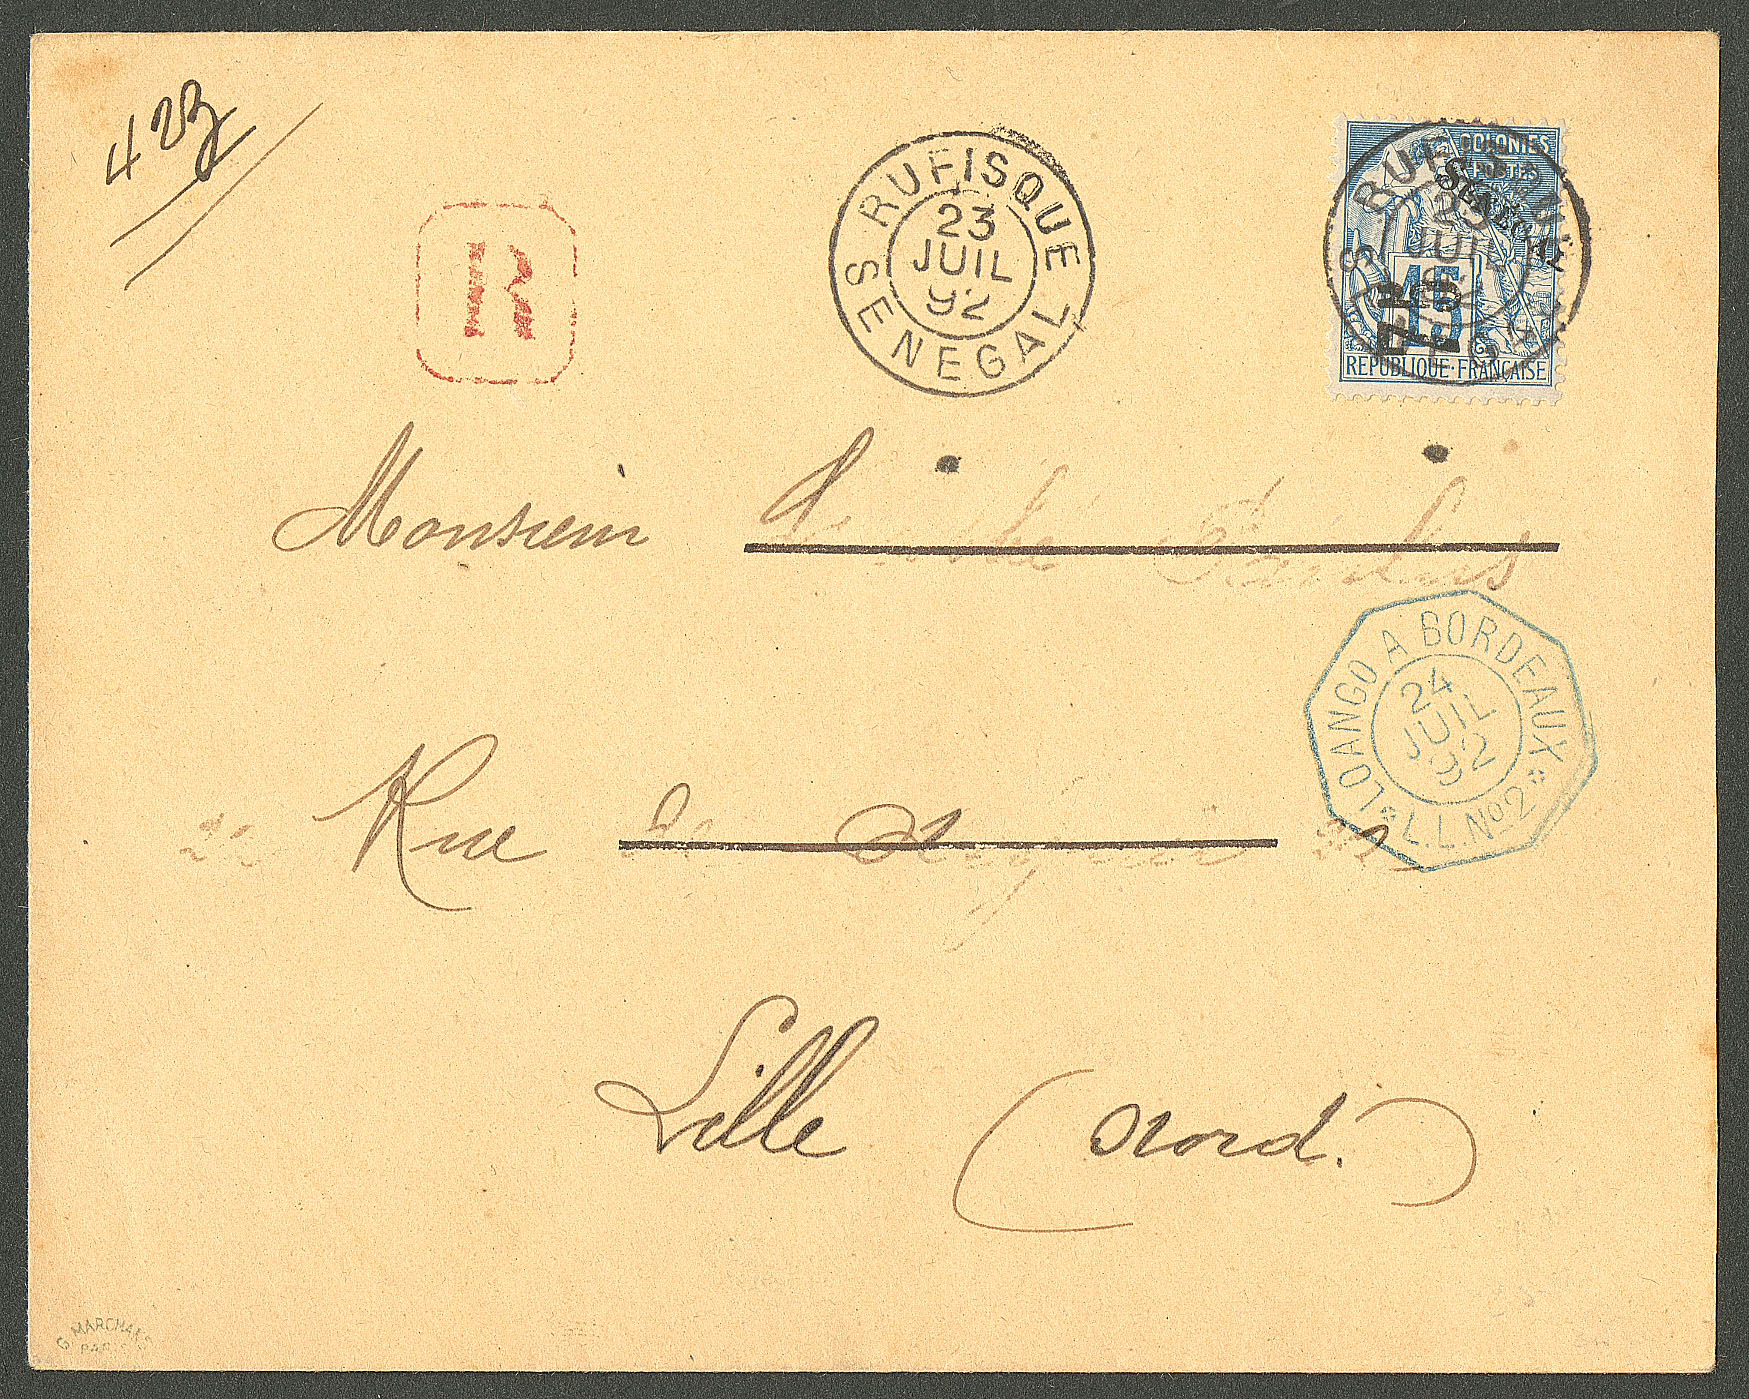 423
R
RUFISQUE
23
JUIL
92
SENEGAL
COLONIES
POSTES
SENEGAL
75
15
REPUBLIQUE FRANÇAISE
Monsieur
LOANGO A BORDEAUX
24
JUIL
92
L.L. No 2
Rue
Lille (Nord.)
G. MARCHAND
PARIS